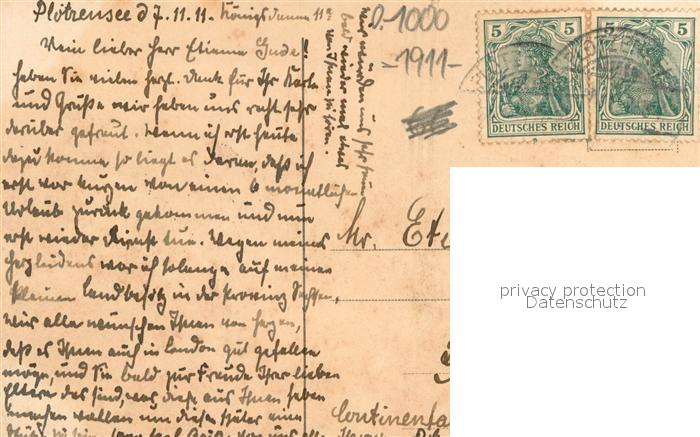 Plötzensee d 7.11.11. Königsdamm 11a
Mein lieber Herr Etienne
haben Sie vielen herzl. Dank für Ihr Karte
und Grüße wir haben uns recht sehr
darüber gefreut. wenn ich erst heute
dazu komme so liegt es daran, daß ich
erst vor kurzen von einen 6 monatlichen
Urlaub zurück gekommen und nun
erst wieder Dienst tue. Wegen meines
Herzleidens war ich solange auf meinen
kleinen Landbesitz in der Provinz Sachsen,
wir alle wünschen Ihnen von Herzen,
daß es Ihnen auch in London gut gefallen
möge, und Sie bald zur Freude Ihrer lieben
Eltern das sind, was diese aus Ihnen haben
machen wollen um diesen später eine
wir würden uns sehr freun
bald wieder mal etwas
von Ihnen zu hören.
D-1000
-1911-
5 5
DEUTSCHES REICH
5 5
DEUTSCHES REICH
Mr. Eti
Continenta
privacy protection
Datenschutz